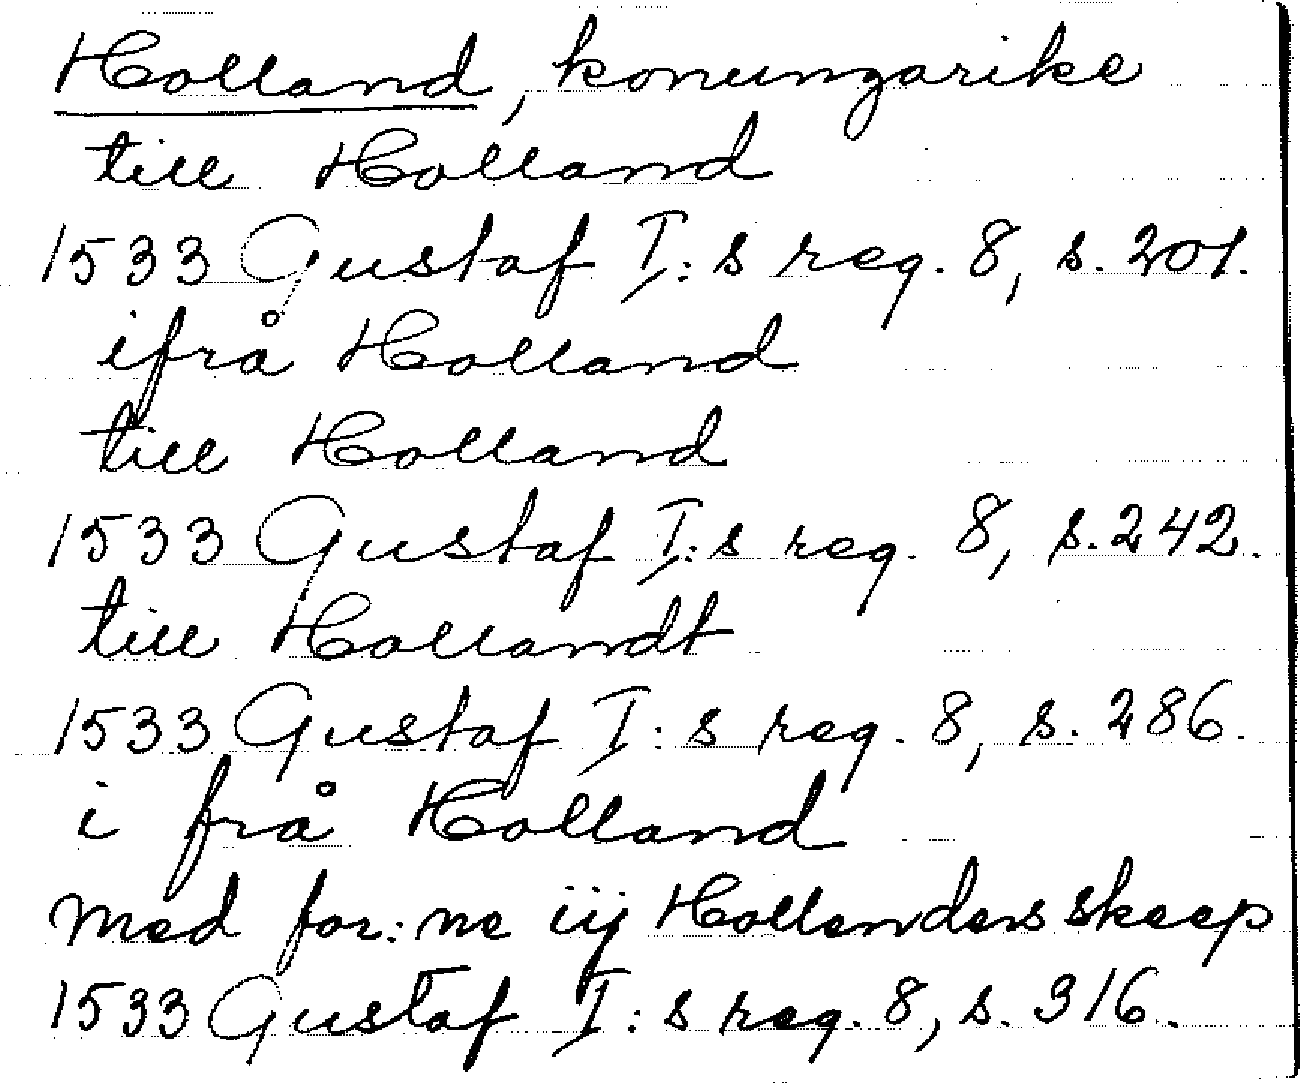 Holland, konungarike
till Holland
1533 Gustaf I:s reg. 8, s. 201.
ifrå Holland
till Holland
1533 Gustaf I:s reg. 8, s. 242.
till Hollandt
1533 Gustaf I:s reg. 8, s. 286.
i frå Holland
med for:ne iij Hollenders skeep
1533 Gustaf I:s reg. 8, s. 316.